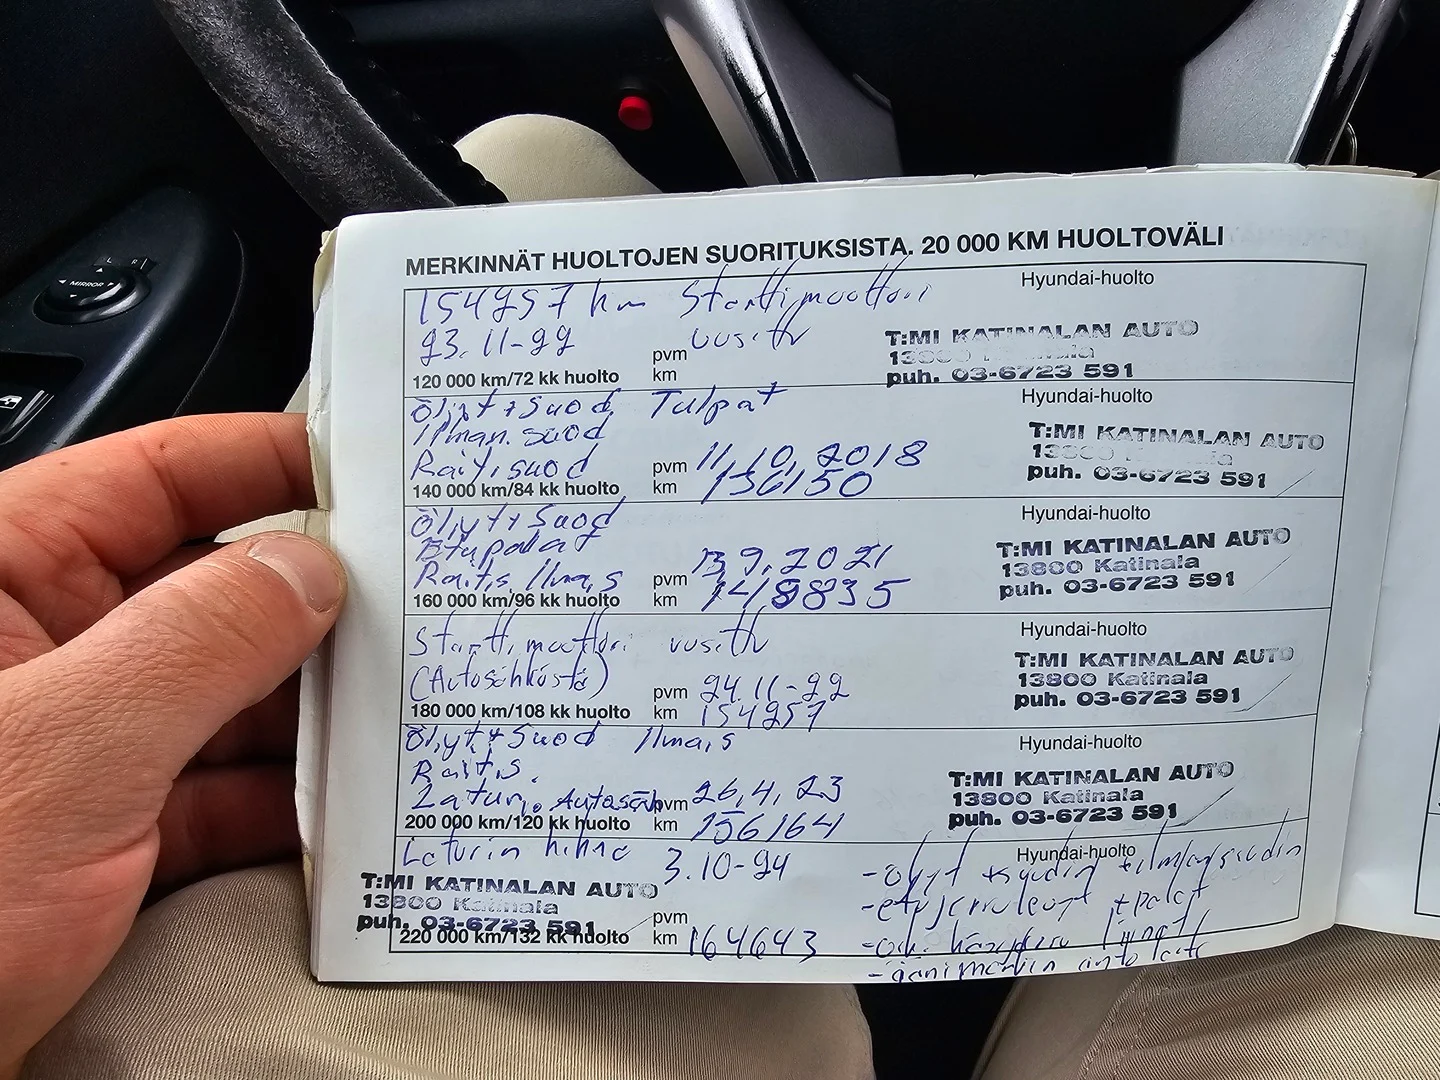 MIRROR
L R
MERKINNÄT HUOLTOJEN SUORITUKSISTA. 20 000 KM HUOLTOVÄLI
154257 km Starttimoottori
uusittu
23.11-22
pvm
km
120 000 km/72 kk huolto
Hyundai-huolto
T:MI KATINALAN AUTO
13800 Katinala
puh. 03-6723 591
Öljyt + Suod. Tulpat
Ilman. suod
Raitisuod
pvm 11.10.2018
km 136150
140 000 km/84 kk huolto
Hyundai-huolto
T:MI KATINALAN AUTO
13800 Katinala
puh. 03-6723 591
Öljyt + Suod
Etupalat
Raitis, Ilma,s
pvm 13 9.2021
km 148835
160 000 km/96 kk huolto
Hyundai-huolto
T:MI KATINALAN AUTO
13800 Katinala
puh. 03-6723 591
Starttimoottori uusittu
(Autosähköstä)
pvm 24.11-22
km 154257
180 000 km/108 kk huolto
Hyundai-huolto
T:MI KATINALAN AUTO
13800 Katinala
puh. 03-6723 591
Öljyt + Suod Ilma,s
Raitis.
Laturi. Autosäh
pvm 26.4.23
km 156164
200 000 km/120 kk huolto
Hyundai-huolto
T:MI KATINALAN AUTO
13800 Katinala
puh. 03-6723 591
Laturin hihna 3.10-24
T:MI KATINALAN AUTO
13800 Katinala
puh. 03-6723 591
pvm
km 164643
220 000 km/132 kk huolto
Hyundai-huolto
-öljyt +suodin +ilmansuodin
-etujarrulevyt +palat